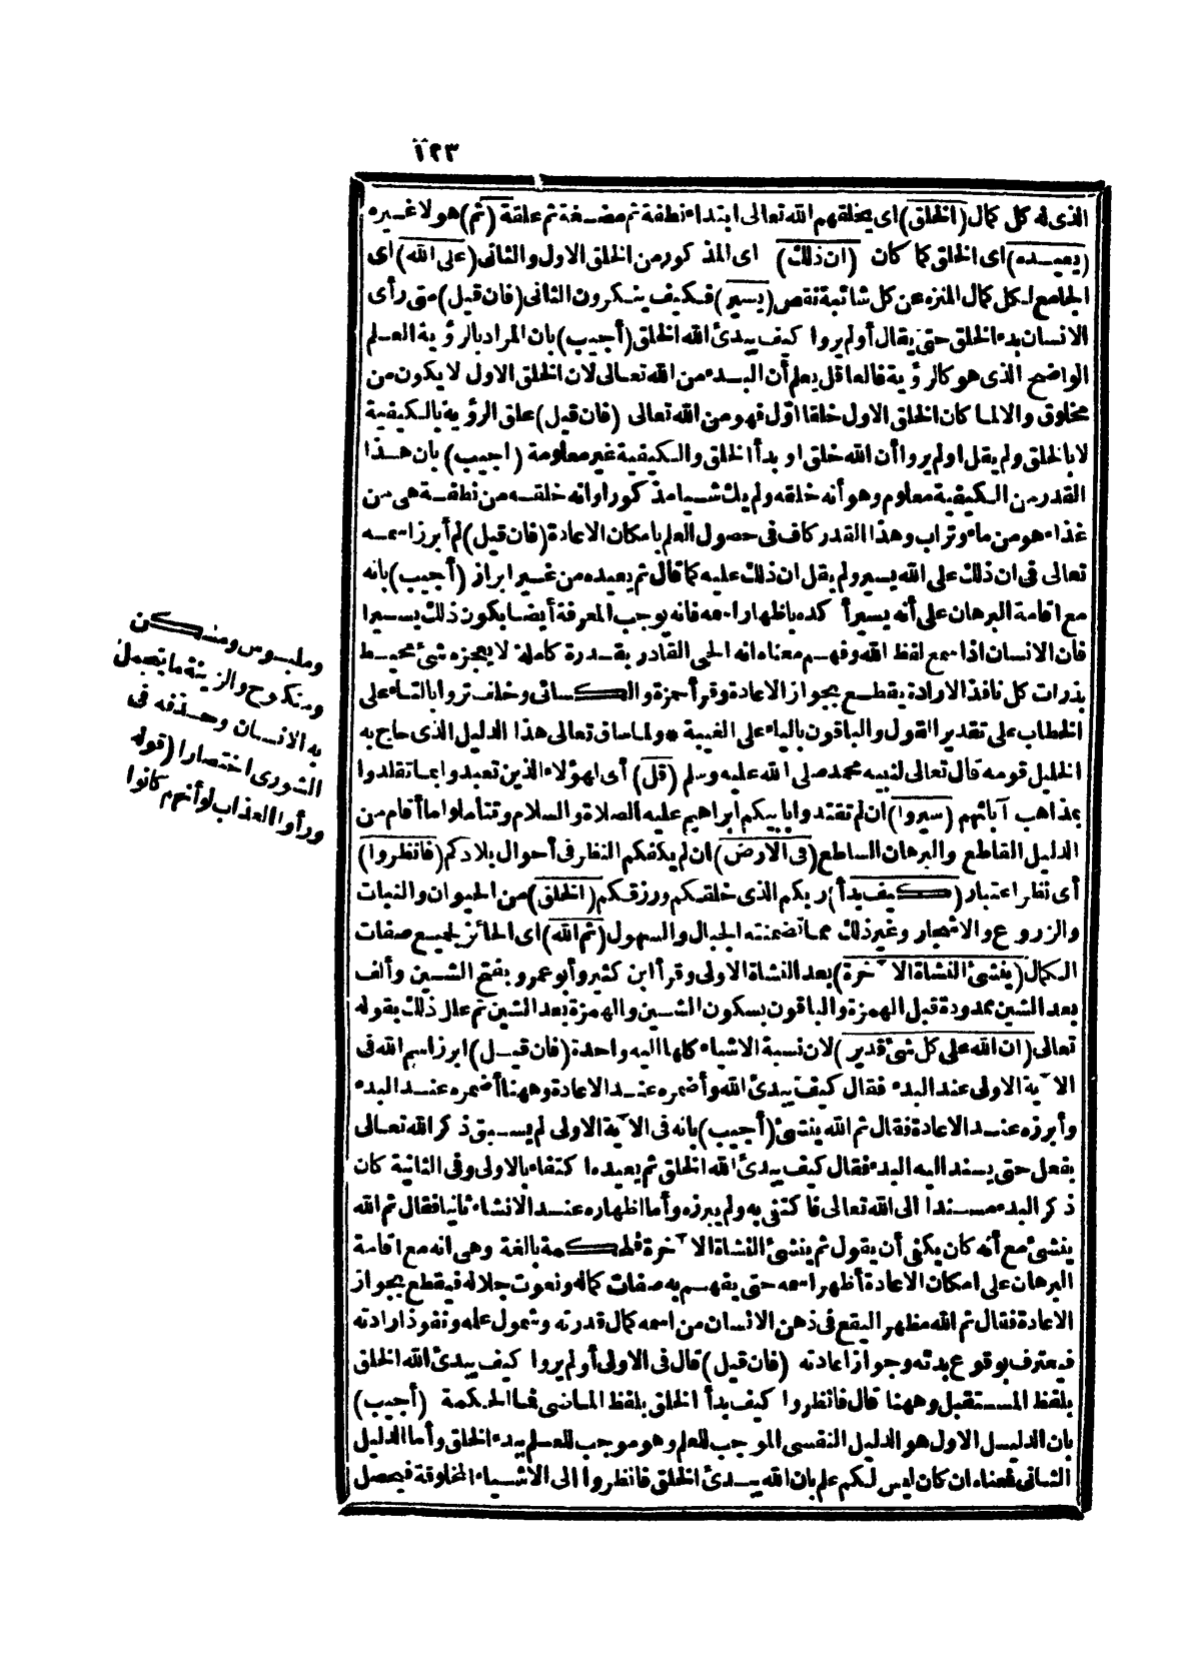 ١٢٣
الذى له كل كمال (الخلق) اى يخلقهم الله تعالى ابتداء نطفة ثم مضغة ثم علقة (ثم) هو لا غيره
(يعيده) اى الخلق كما كان (ان ذلك) اى المذكور من الخلق الاول والثانى (على الله) اى
الجامع لكل كمال المنزه عن كل شائبة نقص (يسير) فكيف ينكرون الثانى (فان قيل) متى رأى
الانسان بدء الخلق حتى يقال أولم يروا كيف يبدئ الله الخلق (أجيب) بان المراد بالرؤية العلم
الواضح الذى هو كالرؤية فالعاقل يعلم أن البدء من الله تعالى لان الخلق الاول لا يكون من
مخلوق والا لما كان الخلق الاول خلقا اوّل فهو من الله تعالى (فان قيل) علق الرؤية بالكيفية
لا بالخلق ولم يقل اولم يروا أن الله خلق او بدأ الخلق والكيفية غير معلومة (اجيب) بان هذا
القدر من الكيفية معلوم وهو أنه خلقه ولم يك شيأ مذكورا وانه خلقه من نطفة هى من
غذاء هو من ماء وتراب وهذا القدر كاف فى حصول العلم بامكان الاعادة (فان قيل) لم أبرز اسمه
تعالى فى ان ذلك على الله يسير ولم يقل ان ذلك عليه كما قال ثم يعيده من غير ابراز (أجيب) بانه
مع اقامة البرهان على أنه يسير أكده باظهار اسمه فانه يوجب المعرفة أيضا بكون ذلك يسيرا
فان الانسان اذا سمع لفظ الله وفهم معناه انه الحى القادر بقدرة كاملة لا يعجزه شئ محيط
بذرات كل نافذ الارادة يقطع بجواز الاعادة وقرأ حمزة والكسائى وخلف تروا بالتاء على
الخطاب على تقدير القول والباقون بالياء على الغيبة * ولما ساق تعالى هذا الدليل الذى حاج به
الخليل قومه قال تعالى لنبيه محمد صلى الله عليه وسلم (قل) أى لهؤلاء الذين تعبدوا بما تقلدوا
بمذاهب آبائهم (سيروا) ان لم تقتدوا بابيكم ابراهيم عليه الصلاة والسلام وتتأملوا ما أقام من
الدليل القاطع والبرهان الساطع (فى الارض) ان لم يكفكم النظر فى أحوال بلادكم (فانظروا)
أى نظر اعتبار (كيف بدأ) ربكم الذى خلقكم ورزقكم (الخلق) من الحيوان والنبات
والزروع والاشجار وغير ذلك مما تضمنته الجبال والسهول (ثم الله) اى الحائز لجميع صفات
الكمال (ينشئ النشاة الآخرة) بعد النشاة الاولى وقرأ ابن كثير وأبو عمرو بفتح الشين وألف
بعد الشين ممدودة قبل الهمزة والباقون بسكون الشين والهمزة بعد الشين ثم علل ذلك بقوله
تعالى (ان الله على كل شئ قدير) لان نسبة الاشياء كلها اليه واحدة (فان قيل) ابرز اسم الله فى
الآية الاولى عند البدء فقال كيف يبدئ الله وأضمره عند الاعادة وههنا أضمره عند البدء
وأبرزه عند الاعادة فقال ثم الله ينشئ (أجيب) بانه فى الآية الاولى لم يسبق ذكر الله تعالى
بفعل حتى يسند اليه البدء فقال كيف يبدئ الله الخلق ثم يعيده اكتفاء بالاولى وفى الثانية كان
ذكر البدء مسندا الى الله تعالى فاكتفى به ولم يبرزه وأما اظهاره عند الانشاء ثانيا فقال ثم الله
ينشئ مع أنه كان يكفى أن يقول ثم ينشئ النشاة الآخرة فلحكمة بالغة وهى انه مع اقامة
البرهان على امكان الاعادة أظهر اسمه حتى يفهم به صفات كماله ونعوت جلاله فيقطع بجواز
الاعادة فقال ثم الله مظهر اليقع فى ذهن الانسان من اسمه كمال قدرته وشمول علمه ونفوذ ارادته
فيعترف بوقوع بدئه وجواز اعادته (فان قيل) قال فى الاولى أولم يروا كيف يبدئ الله الخلق
بلفظ المستقبل وههنا قال فانظروا كيف بدأ الخلق بلفظ الماضى فما الحكمة (أجيب)
بان الدليل الاول هو الدليل النفسى الموجب للعلم وهو موجب للعلم ببدء الخلق وأما الدليل
الثانى فمعناه ان كان ليس لكم علم بان الله يبدئ الخلق فانظروا الى الاشياء المخلوقة فيحصل
وملبوس ومسكن
ومنكوح والزينة ما يتجمل
به الانسان وحذفه فى
الشورى اختصارا (قوله
ورأوا العذاب لو أنهم كانوا